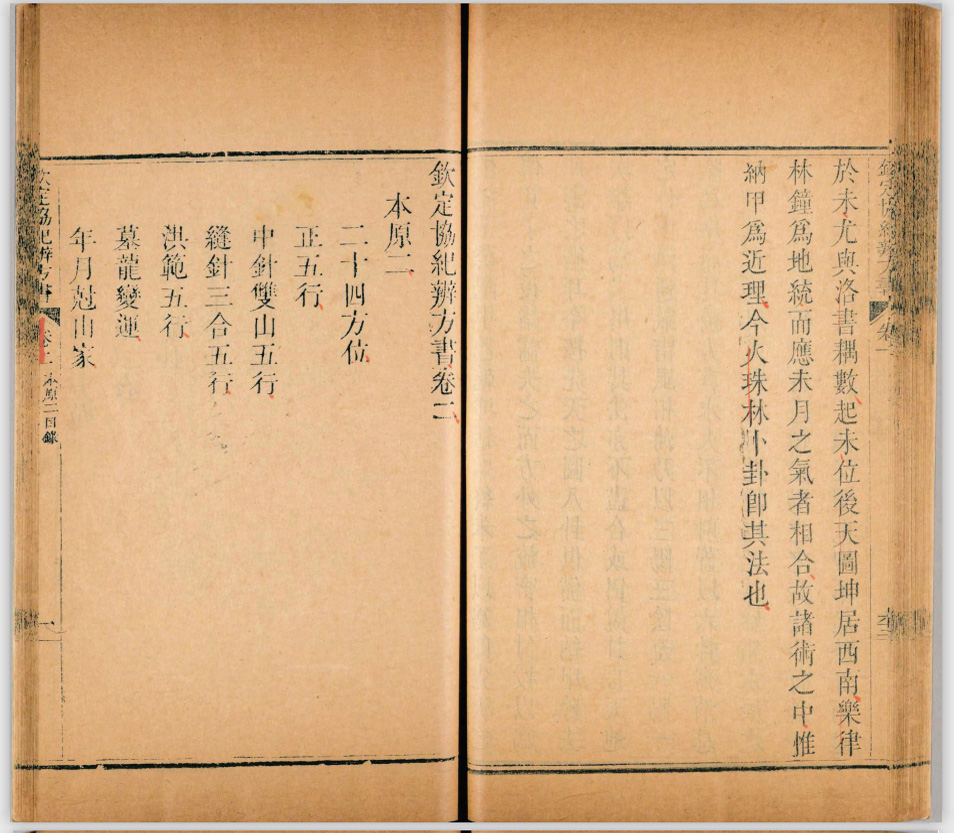 於未尤與洛書耦數起未位後天圖坤居西南樂律
林鐘爲地統而應未月之氣者相合故諸術之中惟
納甲爲近理今火珠林卜卦卽其法也
欽定協紀辨方書卷二
本原二
二十四方位
正五行
中針雙山五行
縫針三合五行
洪範五行
墓龍變運
年月尅山家
欽定協紀辨方書
卷二
本原二目錄
一